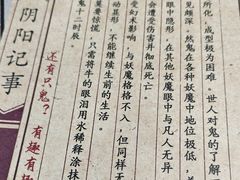 所化，成型极为困难。世人对鬼的了解
见缅深，然鬼在各种妖魔中地位极低，
眼中隐形，在其他妖魔眼中与凡人无异
会遭受伤害并彻底死亡。
受幻术影响，与妖魔格格不入，但同样无
动基形，不能继续生前的生活。
莫要惊慌，只需将牛的眼泪用水稀释涂抹
鬼十二时辰
还有只鬼？
有趣有趣
阴阳记事